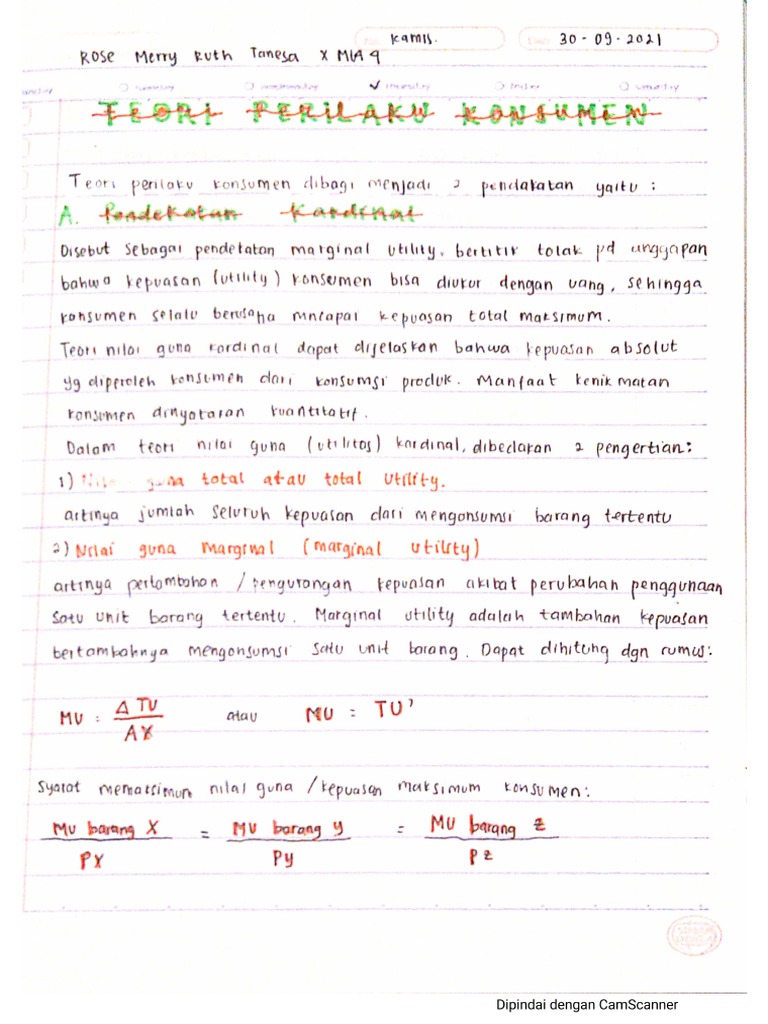 Kamis.
30 - 09 - 2021
Rose Merry Ruth Tanesa X MIA 4
thursday
TEORI PERILAKU KONSUMEN
Teori perilaku konsumen dibagi menjadi 2 pendakatan yaitu :
A. Pendekatan Kardinal
Disebut sebagai pendekatan marginal utility, bertitik tolak pd anggapan
bahwa kepuasan (utility) konsumen bisa diukur dengan uang, sehingga
konsumen selalu berusaha mncapai kepuasan total maksimum.
Teori nilai guna kardinal dapat dijelaskan bahwa kepuasan absolut
yg diperoleh konsumen dari konsumsi produk. Manfaat kenikmatan
konsumen dinyatakan kuantitatif.
Dalam teori nilai guna (utilitas) kardinal, dibedakan 2 pengertian:
1) Nilai guna total atau total utility.
artinya jumlah seluruh kepuasan dari mengonsumsi barang tertentu
2) Nilai guna marginal (marginal utility)
artinya pertambahan / pengurangan kepuasan akibat perubahan penggunaan
satu unit barang tertentu. Marginal utility adalah tambahan kepuasan
bertambahnya mengonsumsi satu unit barang. Dapat dihitung dgn rumus:
MU = Δ TU / ΔX atau MU = TU'
Syarat memaksimum nilai guna / kepuasan maksimum konsumen:
MU barang X / PX = MU barang y / Py = MU barang z / Pz
Dipindai dengan CamScanner